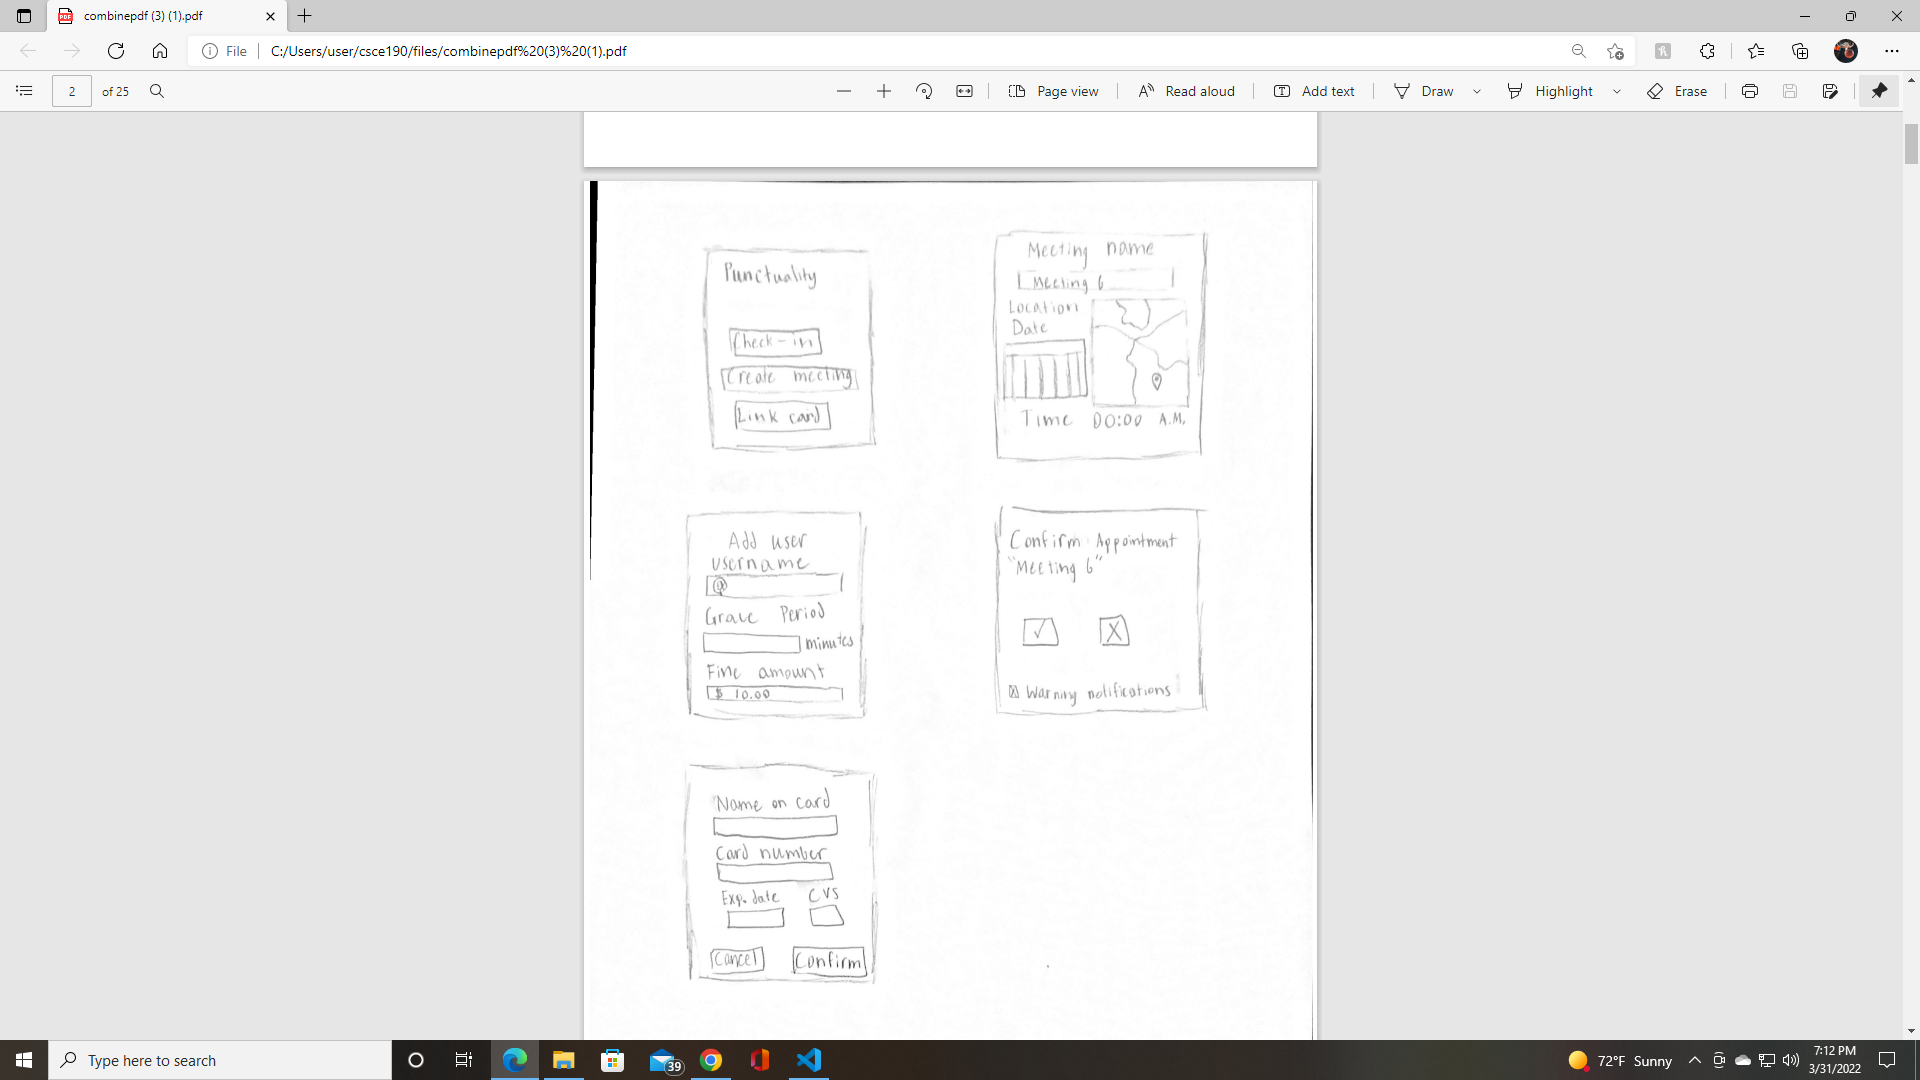 combinepdf (3) (1).pdf
File
C:/Users/user/csce190/files/combinepdf%20(3)%20(1).pdf
2
of 25
Page view
Read aloud
Add text
Draw
Highlight
Erase
Punctuality
Check-in
Create meeting
Link card
Meeting name
Meeting 6
Location
Date
Time 00:00 A.M.
Add user
username
@
Grace Period
minutes
Fine amount
$ 10.00
Confirm Appointment
"Meeting 6"
Warning notifications
Name on card
Card number
Exp. date CVS
Cancel Confirm
Type here to search
39
72°F Sunny
7:12 PM
3/31/2022